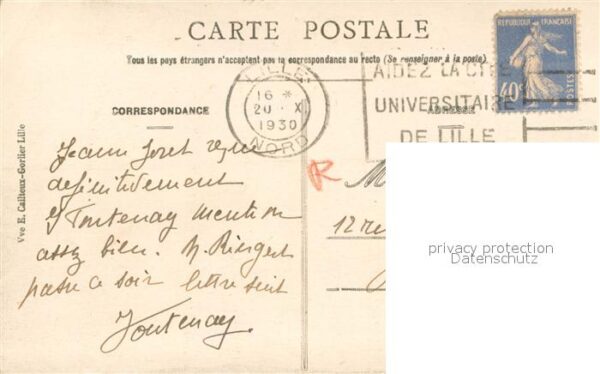 CARTE POSTALE
Tous les pays étrangers n'acceptent pas la correspondance au recto (Se renseigner à la poste)
REPUBLIQUE FRANÇAISE
40c
POSTES
LILLE
16 *
20 · XI
1930
NORD
AIDEZ LA CITE
UNIVERSITAIRE
DE LILLE
CORRESPONDANCE
ADRESSE
Vve E. Cailteux-Gorlier Lille
Jeanne Joret reçue
définitivement
Fontenay mention
assez bien. M.
passe ce soir lettre suit
Fontenay.
R
M
12 rue
privacy protection
Datenschutz